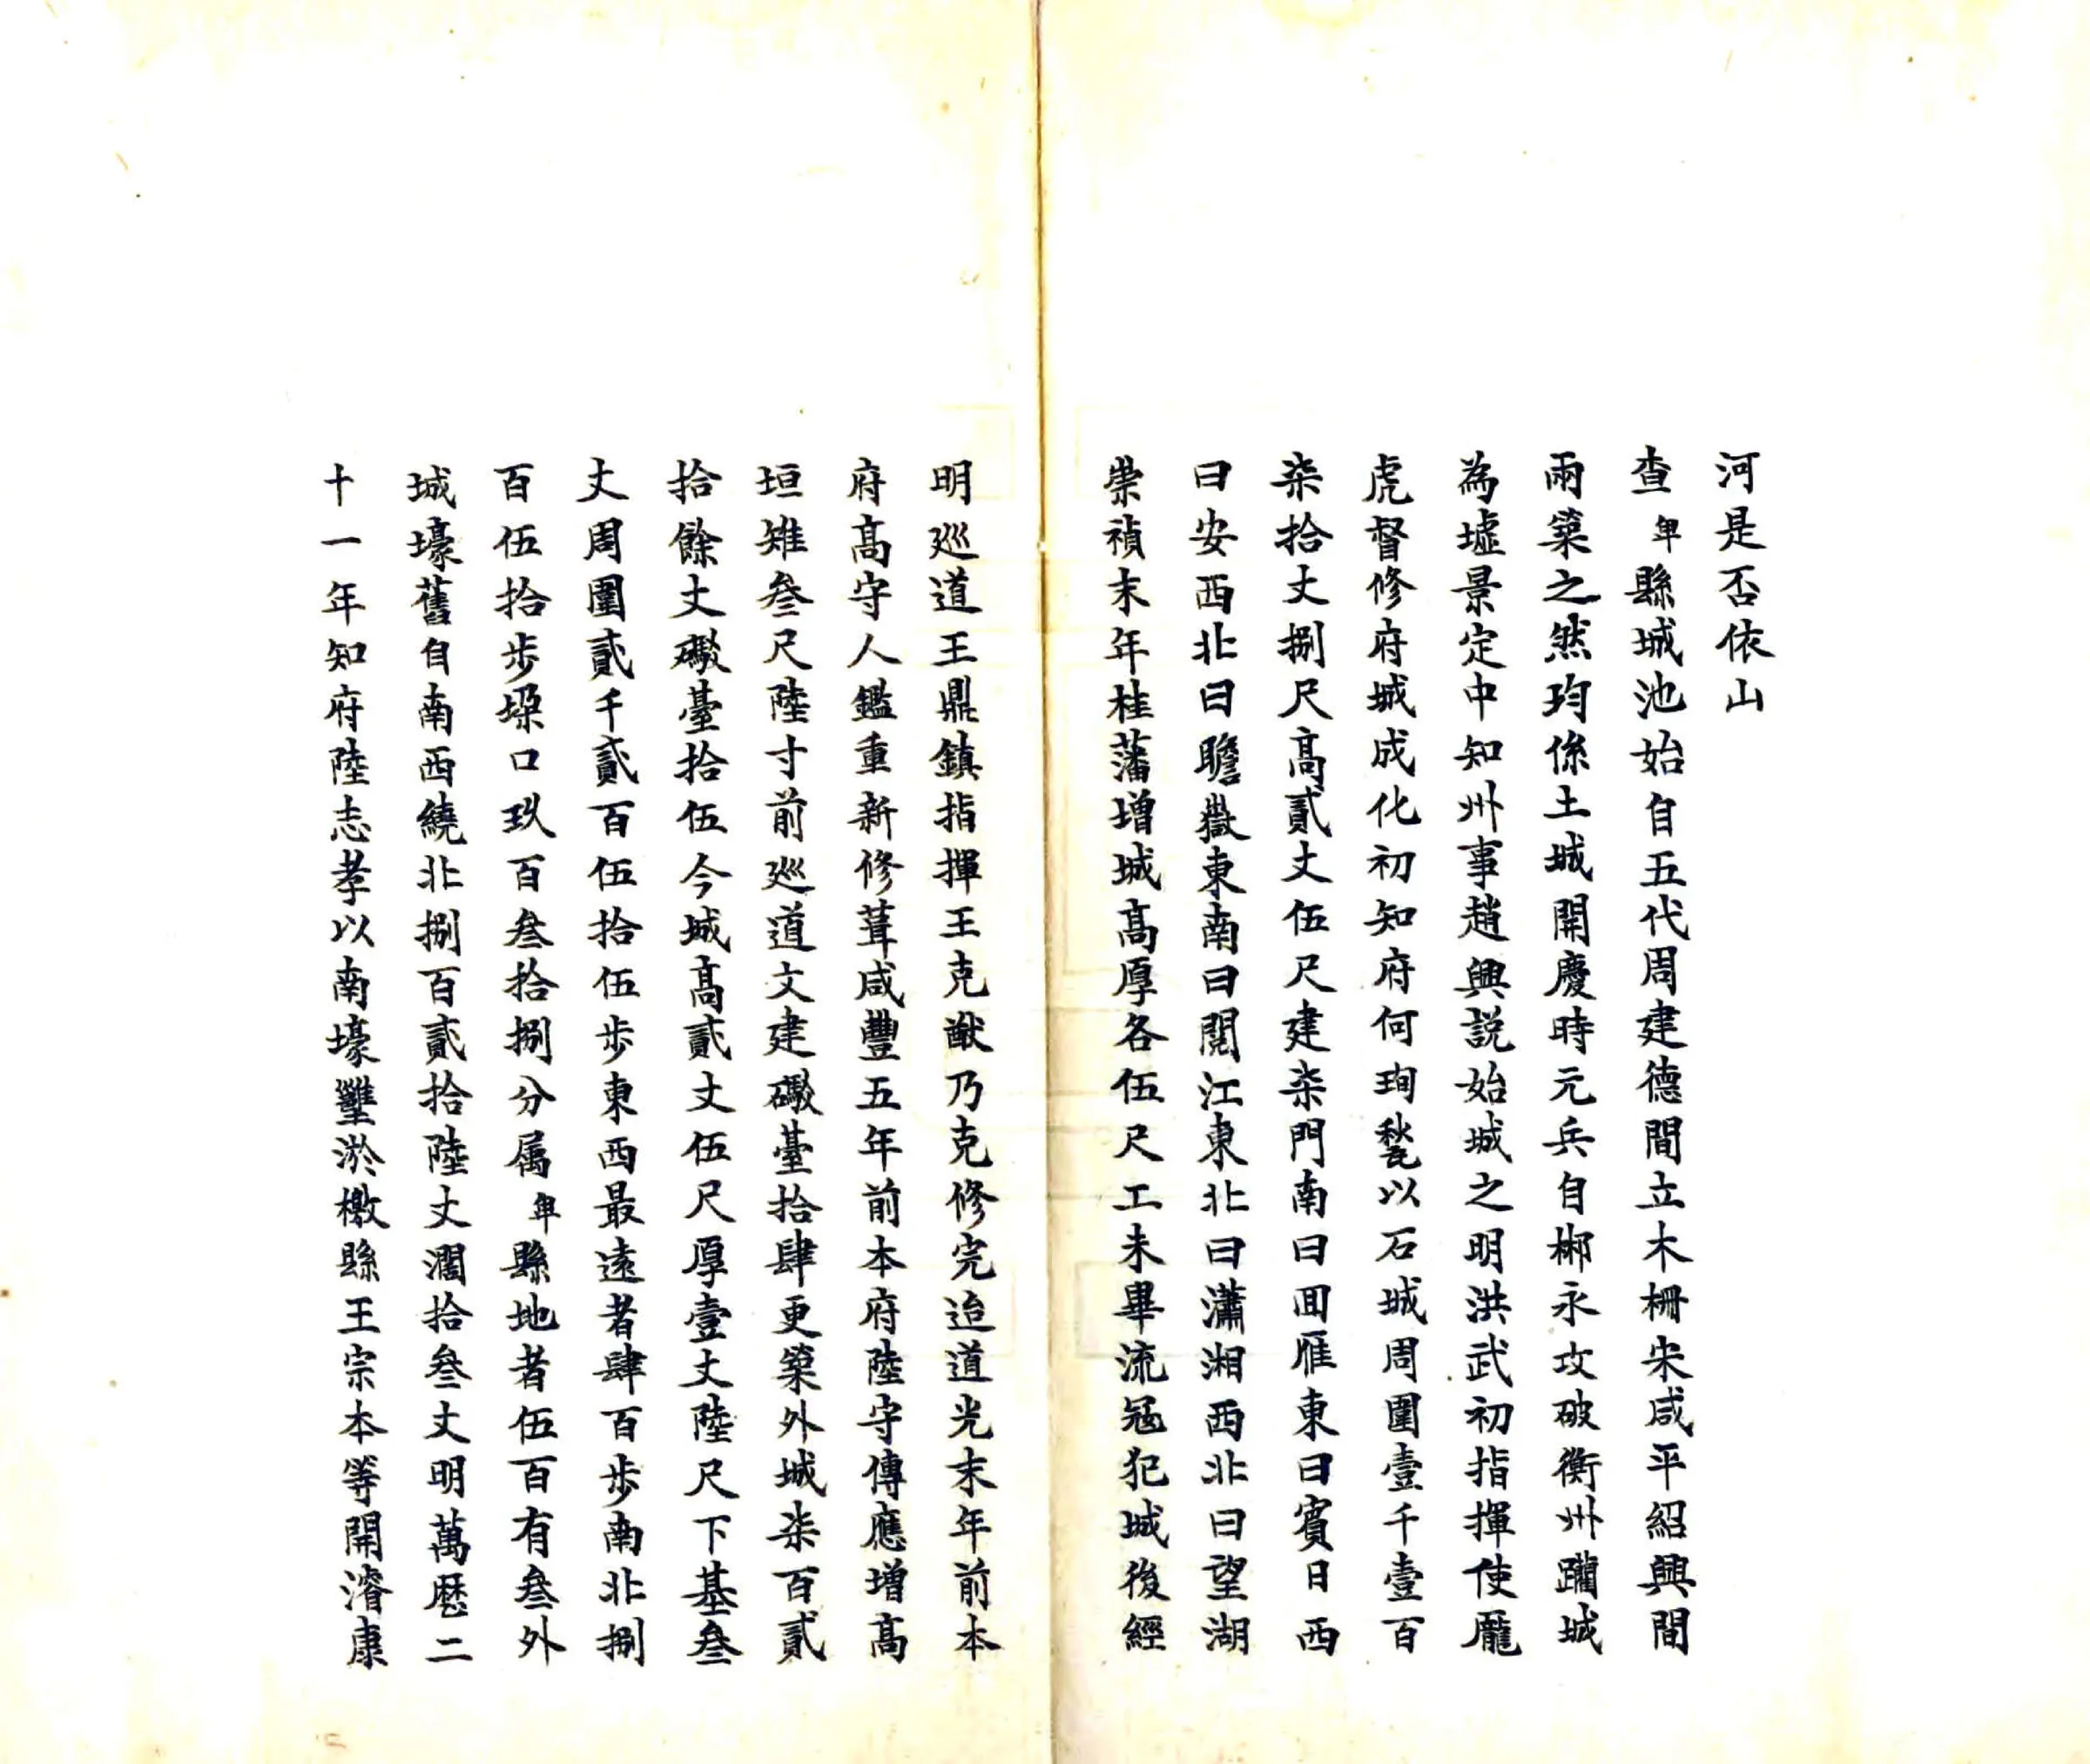 河是否依山
查卑縣城池始自五代周建德間立木柵宋咸平紹興間
兩築之然均係土城開慶時元兵自郴永攻破衡州躪城
為墟景定中知州事趙興說始城之明洪武初指揮使龎
虎督修府城成化初知府何珣甃以石城周圍壹千壹百
柒拾丈捌尺高貳丈伍尺建柒門南曰囬雁東曰賓日西
曰安西北曰瞻嶽東南曰閱江東北曰瀟湘西北曰望湖
崇禎末年桂藩增城高厚各伍尺工未畢流冦犯城後經
明廵道王鼎鎮指揮王克猷乃克修完迨道光末年前本
府高守人鑑重新修葺咸豐五年前本府陸守傳應增高
垣雉叄尺陸寸前廵道文建礮臺拾肆更築外城柒百貳
拾餘丈礮臺拾伍今城高貳丈伍尺厚壹丈陸尺下基叄
丈周圍貳千貳百伍拾伍步東西最遠者肆百步南北捌
百伍拾步垜口玖百叄拾捌分属卑縣地者伍百有叄外
城壕舊自南西繞北捌百貳拾陸丈濶拾叄丈明萬厯二
十一年知府陸志孝以南壕壅淤檄縣王宗本等開濬康